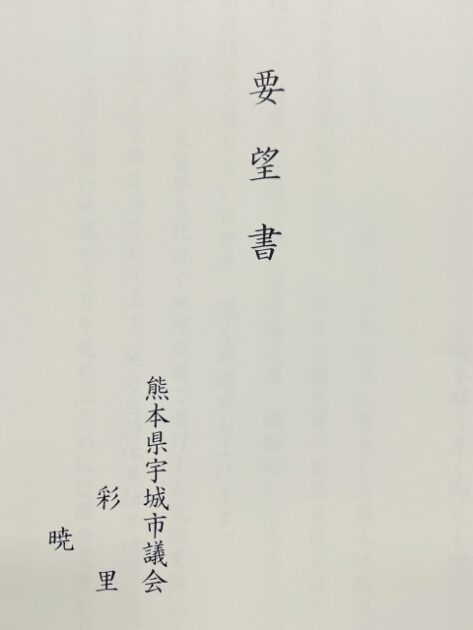 要望書
熊本県宇城市議会
彩里
暁